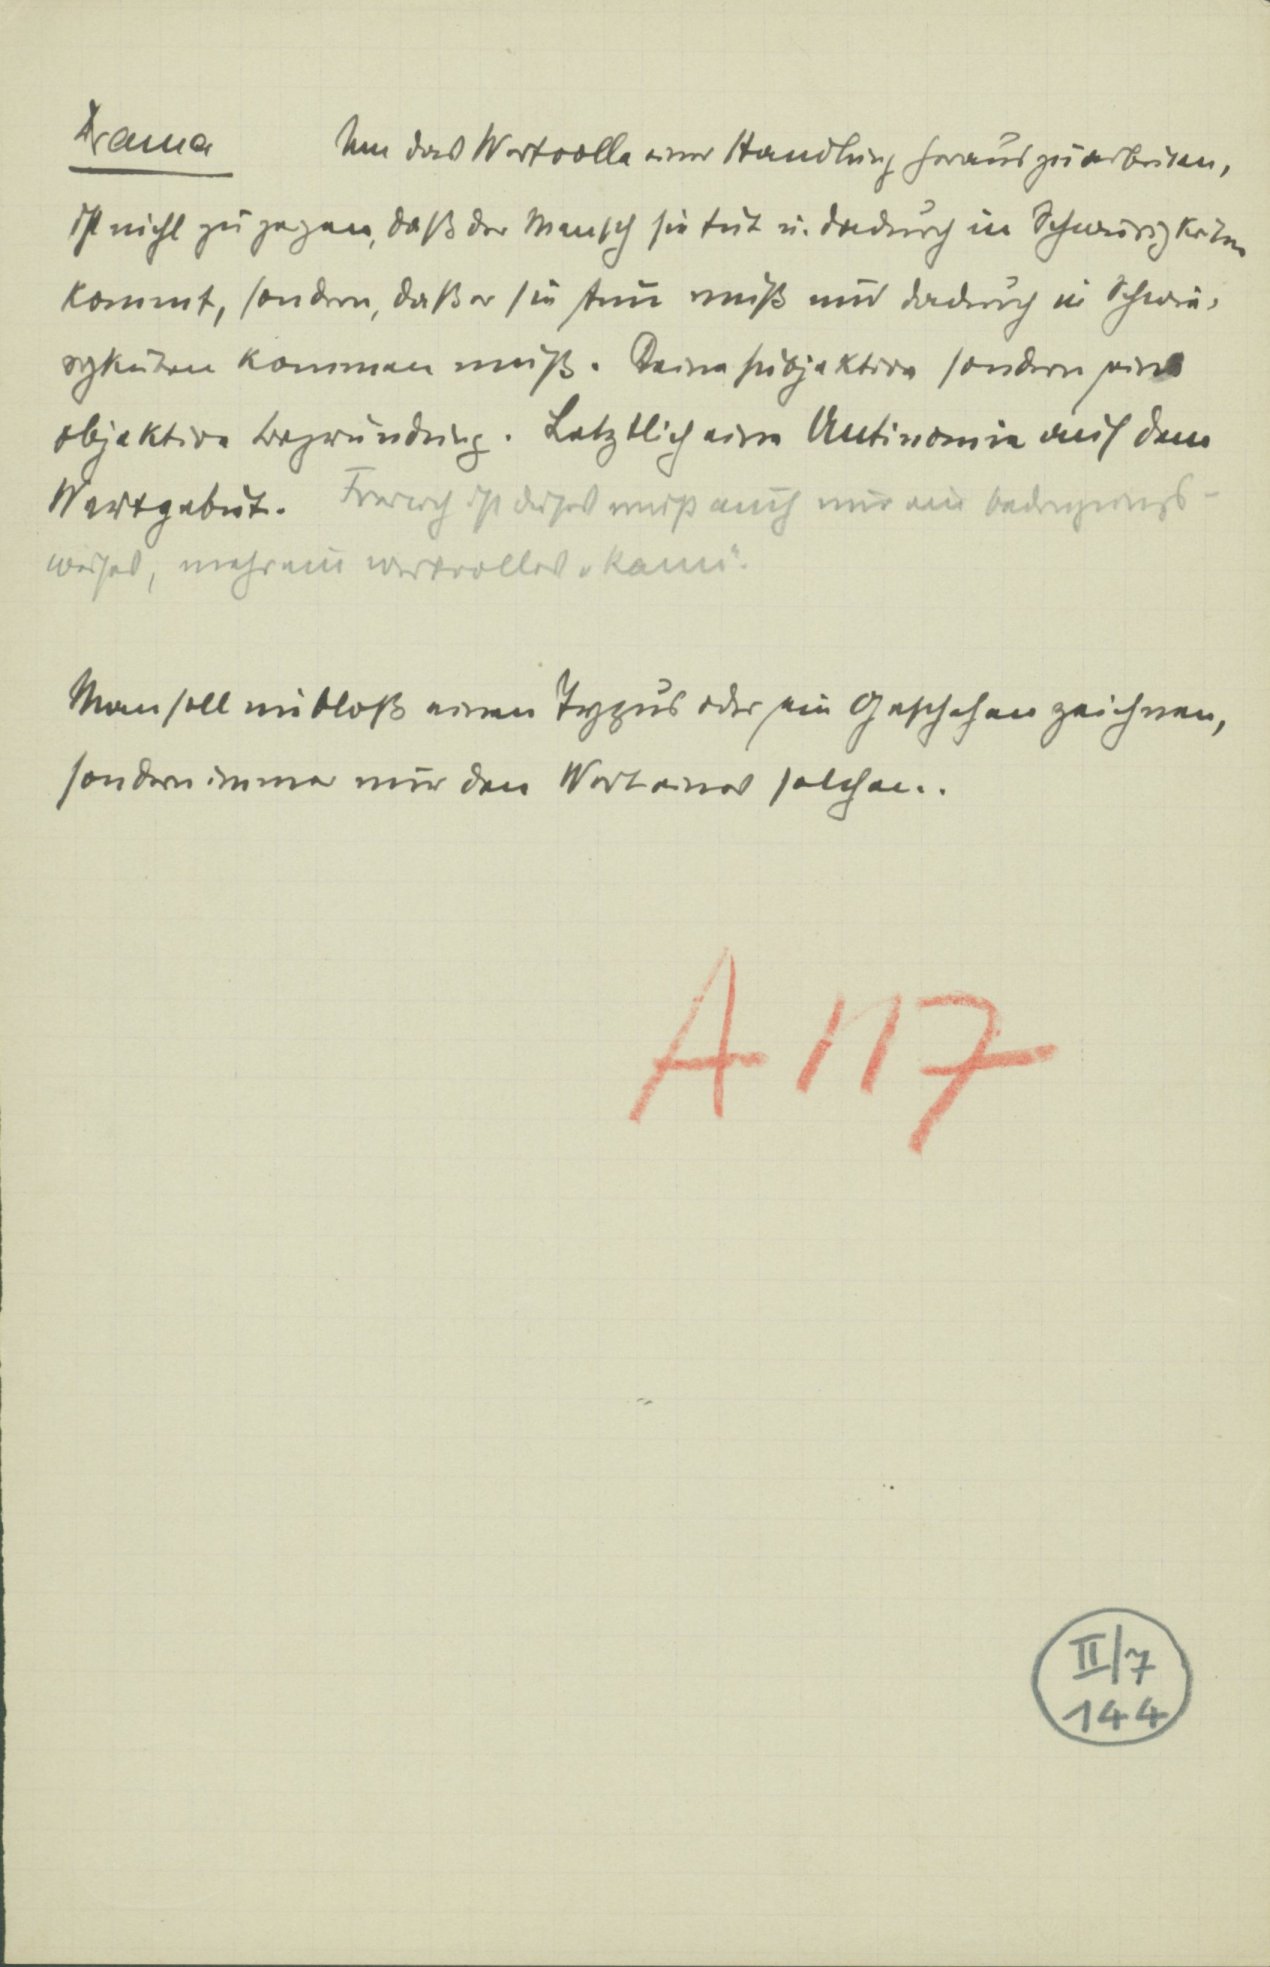 Drama Um das Wertvolle einer Handlung herauszuarbeiten,
ist nicht zu zeigen, daß der Mensch sie tut u. dadurch in Schwierigkeiten
kommt, sondern, daß er sie tun muß und dadurch in Schwie-
rigkeiten kommen muß. Keine subjektive sondern eine
objektive Begründung. Letztlich eine Antinomie auf dem
Wertgebiet. Freilich ist dieses muß auch nur ein bedingungs-
weises, mehr ein wertvolles „kann".
Man soll nie bloß einen Typus oder ein Geschehen zeichnen,
sondern immer nur den Wert eines solchen..
A 117
II/7
144